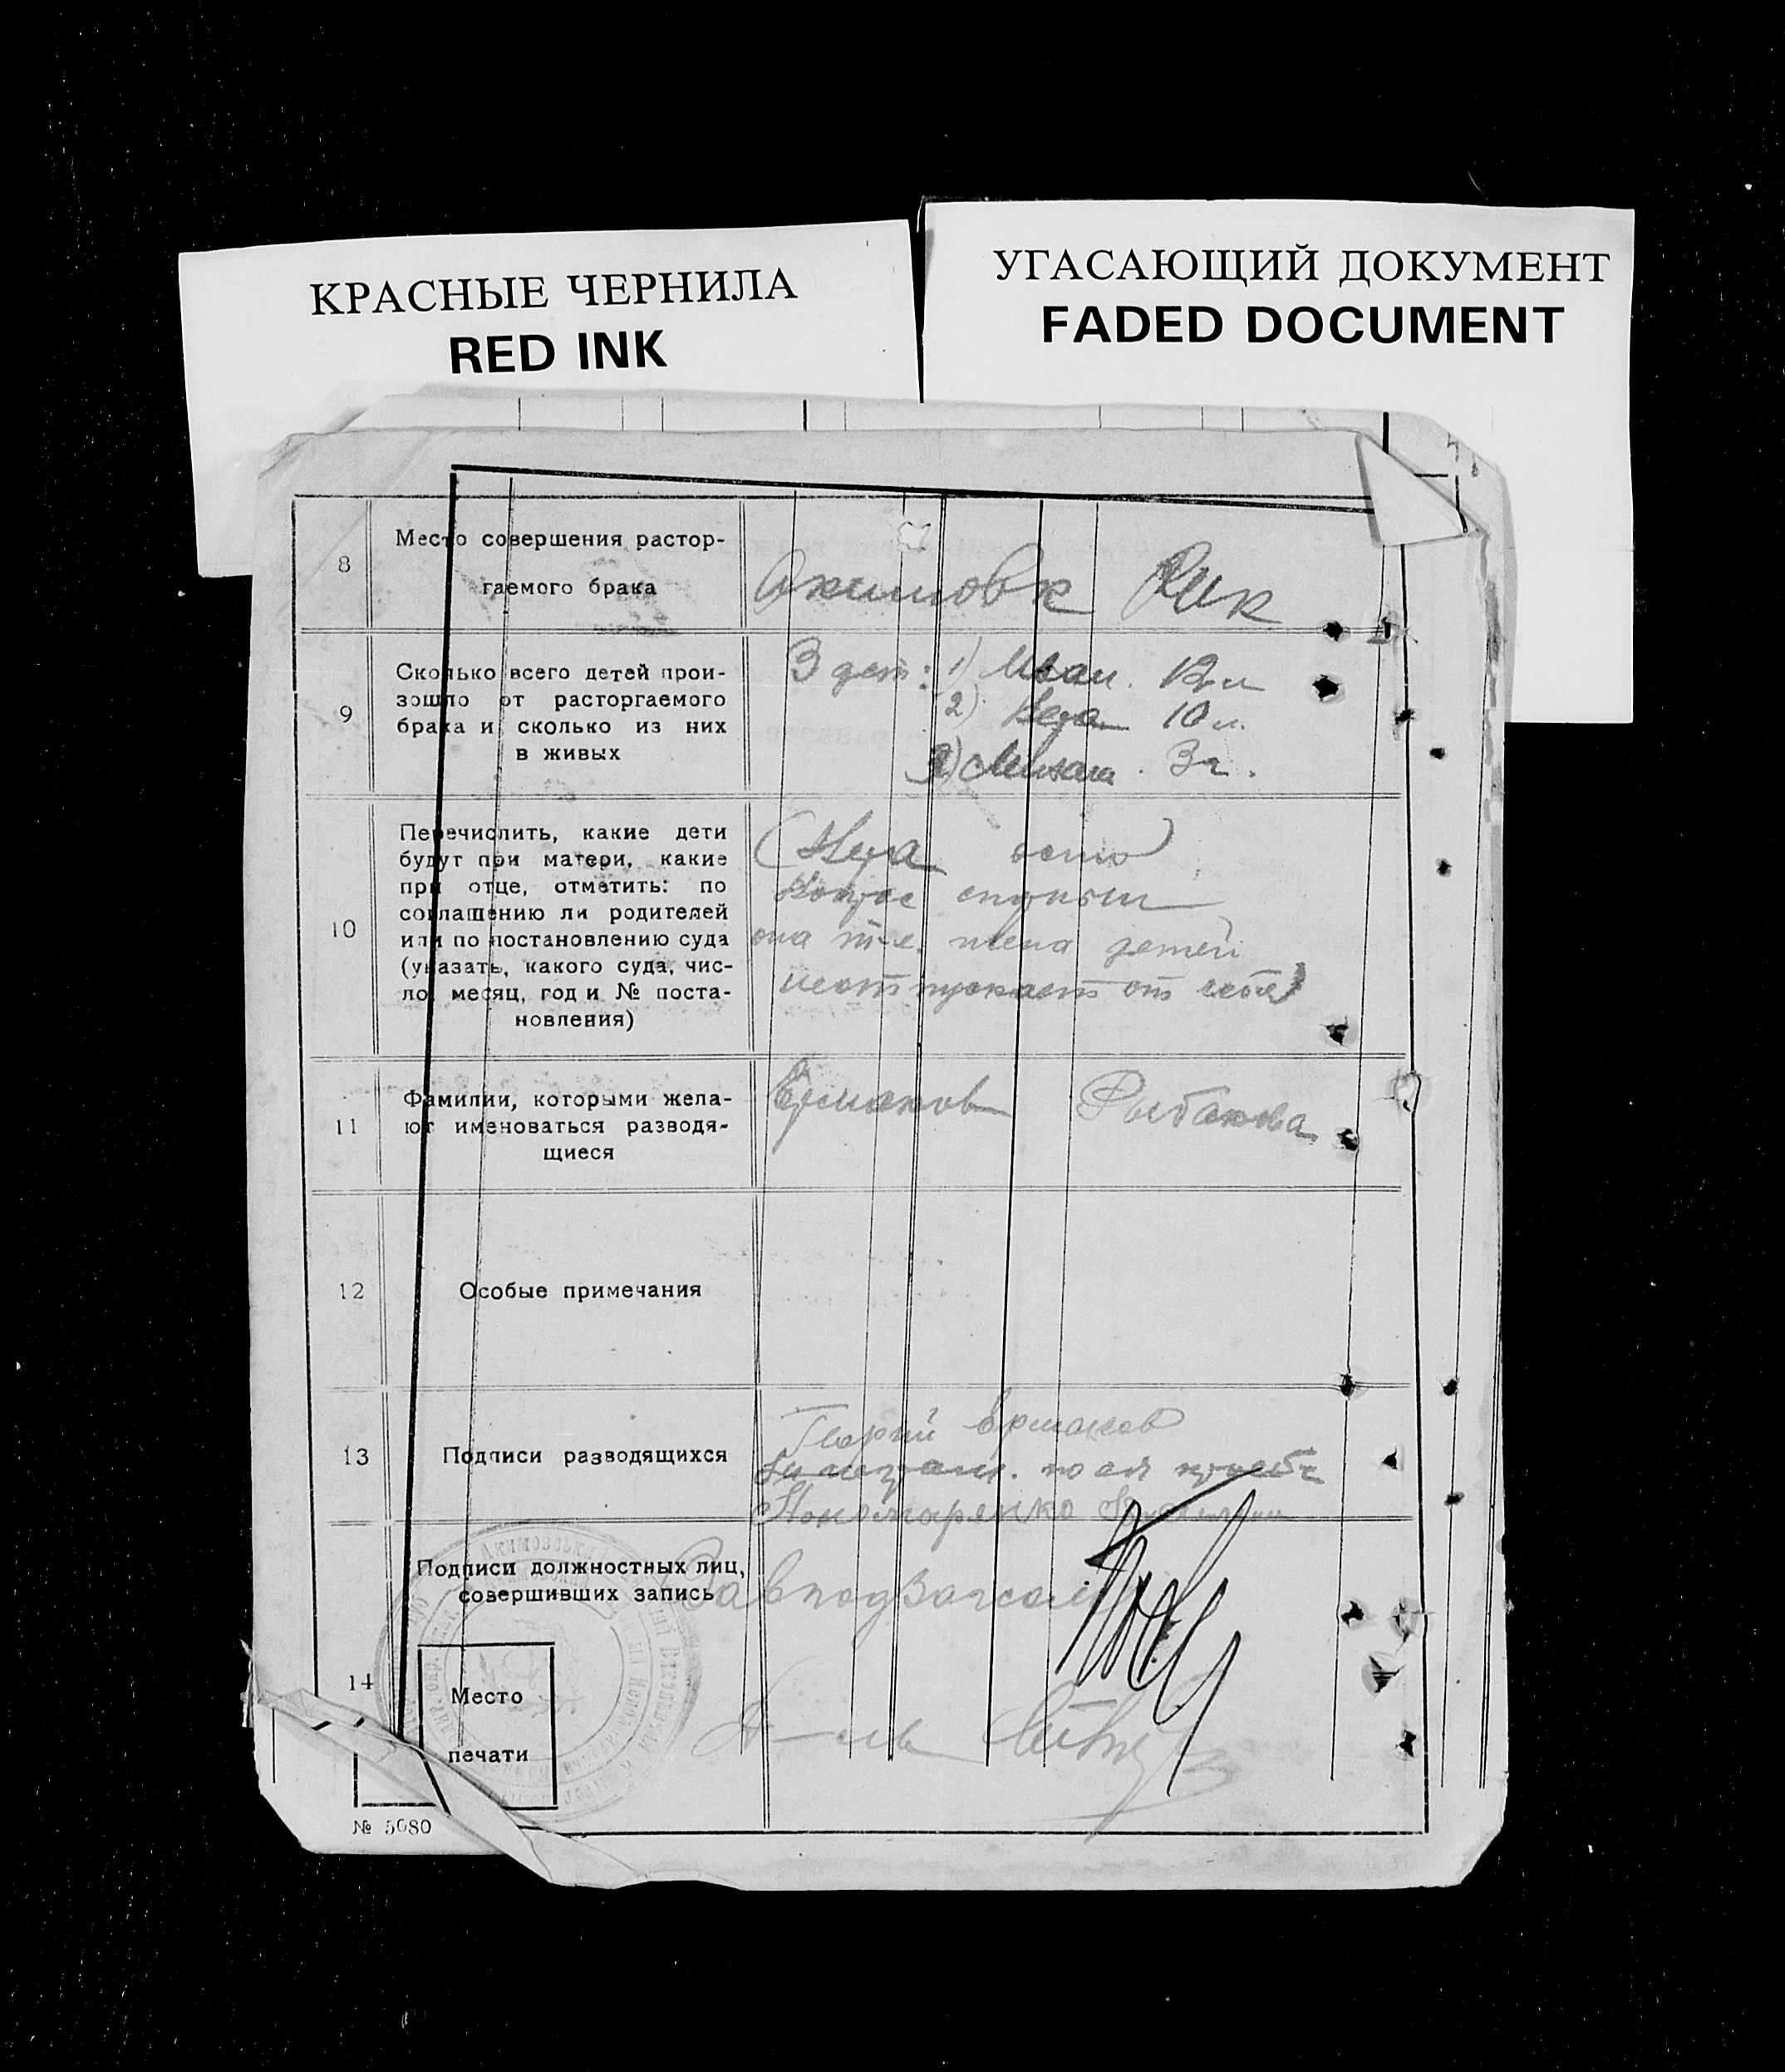 КРАСНЫЕ ЧЕРНИЛА
RED INK
УГАСАЮЩИЙ ДОКУМЕНТ
FADED DOCUMENT
8
Место совершения растор-
гаемого брака
Акимовк Рик
9
Сколько всего детей прои-
зошло от расторгаемого
брака и сколько из них
в живых
3 дет: 1) Иван. 12 л
2) 10 л.
3) 3 г.
10
Перечислить, какие дети
будут при матери, какие
при отце, отметить: по
соглашению ли родителей
или по постановлению суда
(указать, какого суда, чис-
ло, месяц, год и № поста-
новления)
она т.е. жена детей
неотпускает от себя)
11
Фамилии, которыми жела-
ют именоваться разводя-
щиеся
Ермаков Рыбакова
12
Особые примечания
13
Подписи разводящихся
Ермаков
по ея просьбе
Пономаренко
14
Подписи должностных лиц,
совершивших запись
Завподзагсом
Место
печати
№ 5080